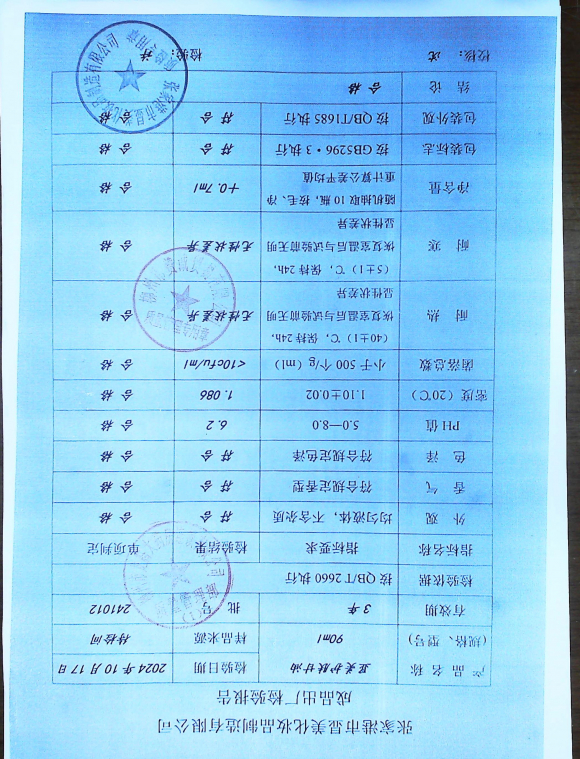 张家港市显美化妆品制造有限公司
成品出厂检验报告
产品名称 显美护肤甘油 检验日期 2024年10月17日
(规格、型号) 90ml 样品来源 待检间
有效期 3年 批号 241012
检验依据 按QB/T 2660执行
指标名称 指标要求 检验结果 单项判定
外观 均匀液体，不含杂质 符合 合格
香气 符合规定香型 符合 合格
色泽 符合规定色泽 符合 合格
PH值 5.0—8.0 6.2 合格
密度（20℃） 1.10±0.02 1.086 合格
菌落总数 小于500个/g（ml） <10cfu/ml 合格
耐热 （40±1）℃，保持24h，
恢复室温后与试验前无明
显性状差异 无性状差异 合格
耐寒 （5±1）℃，保持24h，
恢复室温后与试验前无明
显性状差异 无性状差异 合格
净含量 随机抽取10瓶，按毛、净
重计算公差平均值 +0.7ml 合格
包装标志 按GB5296·3执行 符合 合格
包装外观 按QB/T1685执行 符合 合格
结论 合格
校核： 检验：
张家港市显美化妆品制造有限公司